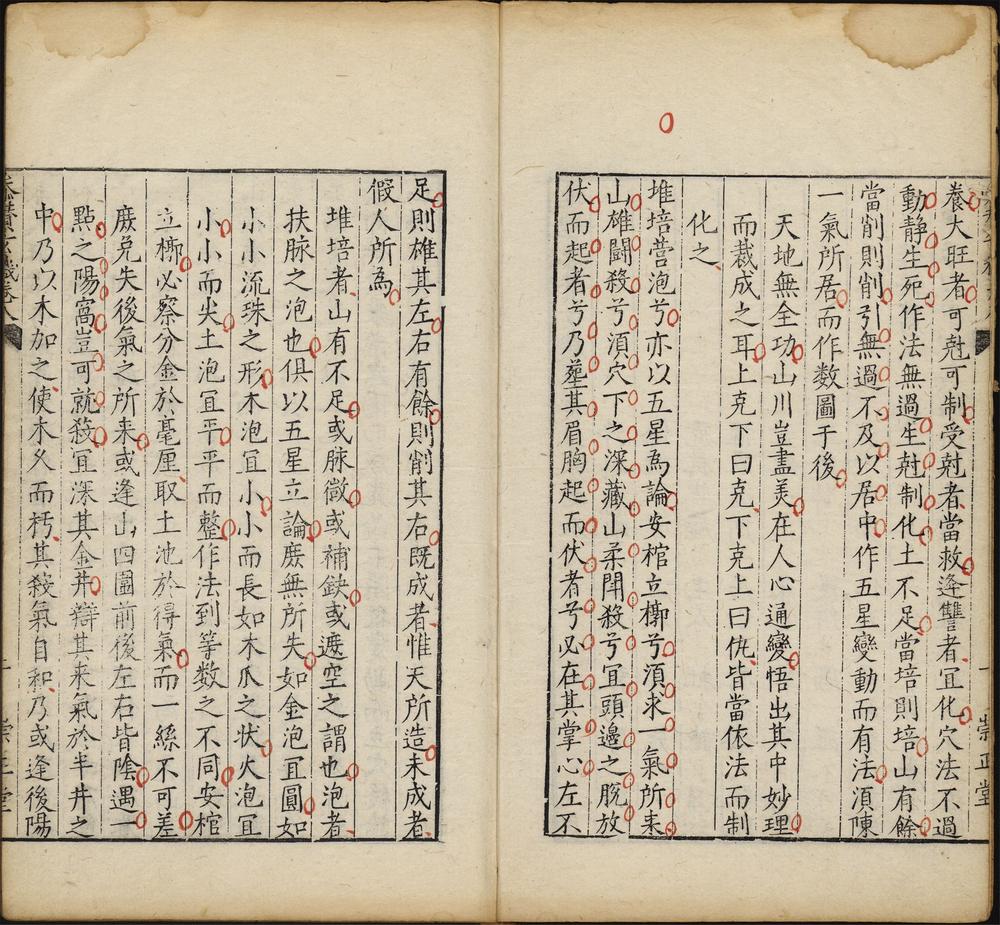 養大旺者可尅可制受尅者當救逄讐者冝化穴法不過
動静生死作法無過生尅制化土不足當培則培山有餘
當削則削引無過不及以居中作五星變動而有法湏陳
一氣所居而作数圖于後
天地無全功山川豈盡美在人心通變悟出其中妙理
而裁成之耳上克下曰克下克上曰仇皆當依法而制
化之
堆培营泡兮亦以五星為論安棺立槨兮湏求一氣所来
山雄闘殺兮湏穴下之深藏山柔閗殺兮冝頭邉之脫放
伏而起者兮乃塟其眉胸起而伏者兮必在其掌心左不
足則雄其左右有餘則削其右既成者惟天所造未成者
假人所為
堆培者山有不足或脉微或補缺或遮空之謂也泡者
扶脉之泡也俱以五星立論庶無所失如金泡冝圓如
小小流珠之形木泡冝小小而長如木爪之状火泡冝
小小而尖土泡冝平平而整作法到等数之不同安棺
立槨必察分金於毫厘取土池於得氣而一絲不可差
庶免失後氣之所来或逢山四圍前後左右皆陰遇一
點之陽窩豈可就殺冝深其金井辯其来氣於半井之
中乃以木加之使木久而朽其殺氣自和乃或逢後陽
崇正堂